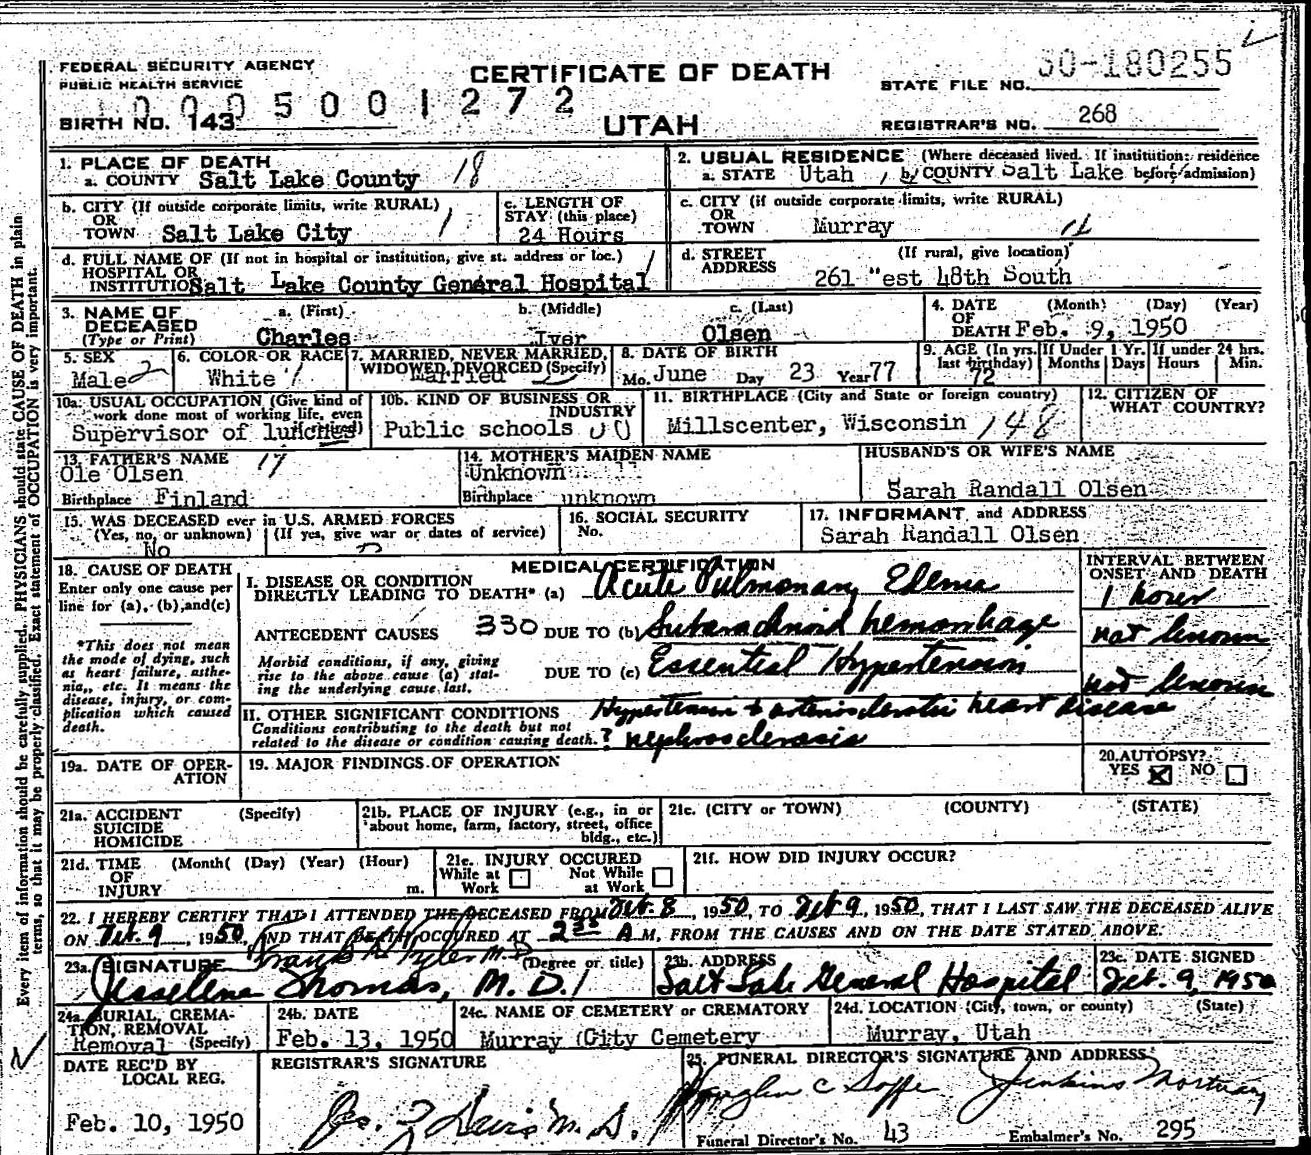 FEDERAL SECURITY AGENCY
PUBLIC HEALTH SERVICE
CERTIFICATE OF DEATH
UTAH
STATE FILE NO. 50-180255
BIRTH NO. 143
5001272
REGISTRAR'S NO. 268
1. PLACE OF DEATH
a. COUNTY Salt Lake County 18
2. USUAL RESIDENCE (Where deceased lived. If institution: residence before admission)
a. STATE Utah b. COUNTY Salt Lake
b. CITY (If outside corporate limits, write RURAL)
OR TOWN Salt Lake City
c. LENGTH OF STAY (this place)
24 Hours
c. CITY (if outside corporate limits, write RURAL)
OR TOWN Murray
d. FULL NAME OF (If not in hospital or institution, give st. address or loc.)
HOSPITAL OR INSTITUTION Salt Lake County General Hospital
d. STREET ADDRESS (If rural, give location)
261 "est 48th South
3. NAME OF DECEASED (Type or Print)
a. (First) Charles b. (Middle) Iver c. (Last) Olsen
4. DATE OF DEATH (Month) (Day) (Year)
Feb. 9, 1950
5. SEX
Male 2
6. COLOR OR RACE
White 1
7. MARRIED, NEVER MARRIED, WIDOWED, DIVORCED (Specify)
Married
8. DATE OF BIRTH
Mo. June Day 23 Year 77
9. AGE (In yrs. last birthday) 72
If Under 1 Yr. Months Days
If under 24 hrs. Hours Min.
10a. USUAL OCCUPATION (Give kind of work done most of working life, even if retired)
Supervisor of lunches
10b. KIND OF BUSINESS OR INDUSTRY
Public schools
11. BIRTHPLACE (City and State or foreign country)
Millscenter, Wisconsin 148
12. CITIZEN OF WHAT COUNTRY?
13. FATHER'S NAME 17
Ole Olsen
Birthplace Finland
14. MOTHER'S MAIDEN NAME
Unknown
Birthplace unknown
HUSBAND'S OR WIFE'S NAME
Sarah Randall Olsen
15. WAS DECEASED ever in U.S. ARMED FORCES
(Yes, no, or unknown) (If yes, give war or dates of service)
No
16. SOCIAL SECURITY
No.
17. INFORMANT and ADDRESS
Sarah Randall Olsen
18. CAUSE OF DEATH
Enter only one cause per line for (a), (b), and (c)
*This does not mean the mode of dying, such as heart failure, asthenia, etc. It means the disease, injury, or complication which caused death.
MEDICAL CERTIFICATION
INTERVAL BETWEEN ONSET AND DEATH
I. DISEASE OR CONDITION
DIRECTLY LEADING TO DEATH* (a) Acute Pulmonary Edema 1 hour
ANTECEDENT CAUSES 330 DUE TO (b) Subarachnoid hemorrhage not known
Morbid conditions, if any, giving rise to the above cause (a) stating the underlying cause last.
DUE TO (c) Essential Hypertension not known
II. OTHER SIGNIFICANT CONDITIONS Hypertension & arteriosclerotic heart disease
Conditions contributing to the death but not related to the disease or condition causing death. ? nephrosclerosis
19a. DATE OF OPERATION
19. MAJOR FINDINGS OF OPERATION
20. AUTOPSY?
YES NO
21a. ACCIDENT SUICIDE HOMICIDE (Specify)
21b. PLACE OF INJURY (e.g., in or about home, farm, factory, street, office bldg., etc.)
21c. (CITY or TOWN) (COUNTY) (STATE)
21d. TIME OF INJURY (Month( (Day) (Year) (Hour) m.
21e. INJURY OCCURED
While at Work Not While at Work
21f. HOW DID INJURY OCCUR?
22. I HEREBY CERTIFY THAT I ATTENDED THE DECEASED FROM Feb. 8, 1950, TO Feb 9, 1950, THAT I LAST SAW THE DECEASED ALIVE
ON Feb. 9, 1950, AND THAT DEATH OCCURED AT 2 30 A M, FROM THE CAUSES AND ON THE DATE STATED ABOVE.
23a. SIGNATURE (Degree or title)
Frank Tyler M.D.
Jesselene Thomas, M.D.
23b. ADDRESS
Salt Lake General Hospital
23c. DATE SIGNED
Feb. 9, 1950
24a. BURIAL, CREMATION, REMOVAL (Specify)
Removal
24b. DATE
Feb. 13, 1950
24c. NAME OF CEMETERY or CREMATORY
Murray City Cemetery
24d. LOCATION (City, town, or county) (State)
Murray, Utah
DATE REC'D BY LOCAL REG.
Feb. 10, 1950
REGISTRAR'S SIGNATURE
Davis M.D.
25. FUNERAL DIRECTOR'S SIGNATURE AND ADDRESS
Jenkins Mortuary
Funeral Director's No. 43 Embalmer's No. 295
Every item of information should be carefully supplied. PHYSICIANS should state CAUSE OF DEATH in plain
terms, so that it may be properly classified. Exact statement of OCCUPATION is very important.